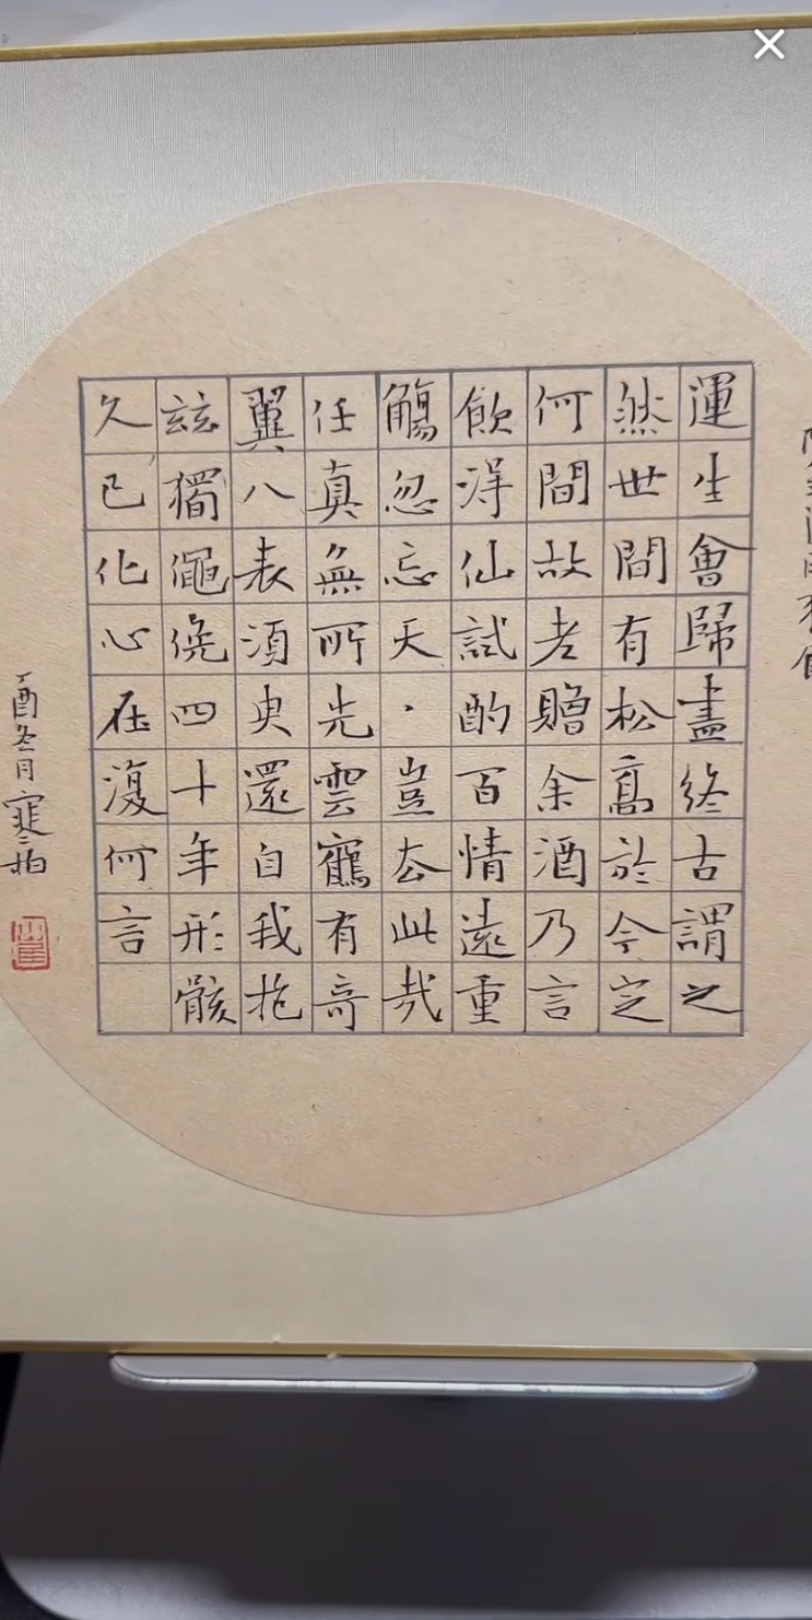 運生會歸盡終古謂之
然世間有松高於今定
何間故老贈余酒乃言
飲得仙試酌百情遠重
觴忽忘天·豈去此哉
任真無所先雲鶴有奇
翼八表須臾還自我抱
茲獨僶俛四十年形骸
久已化心在復何言
丁酉冬月寒